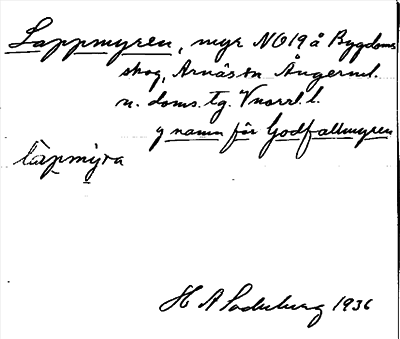 Lappmyren, myr NO19 å Bygdoms
skog, Arnäs sn Ångerml.
n. doms. tg. Vnorrl. l.
g namn för Godfallmyren
làpmýra
H A Soderberg 1936